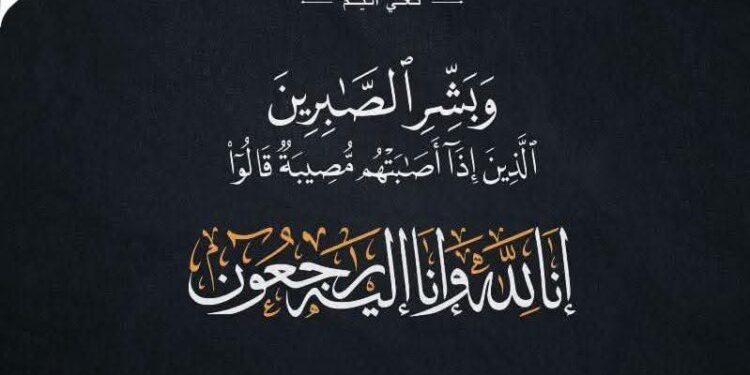 نعي أليم
وَبَشِّرِ ٱلصَّٰبِرِينَ
ٱلَّذِينَ إِذَآ أَصَٰبَتۡهُم مُّصِيبَةٞ قَالُوٓاْ
إنا لله وإنا إليه راجعون